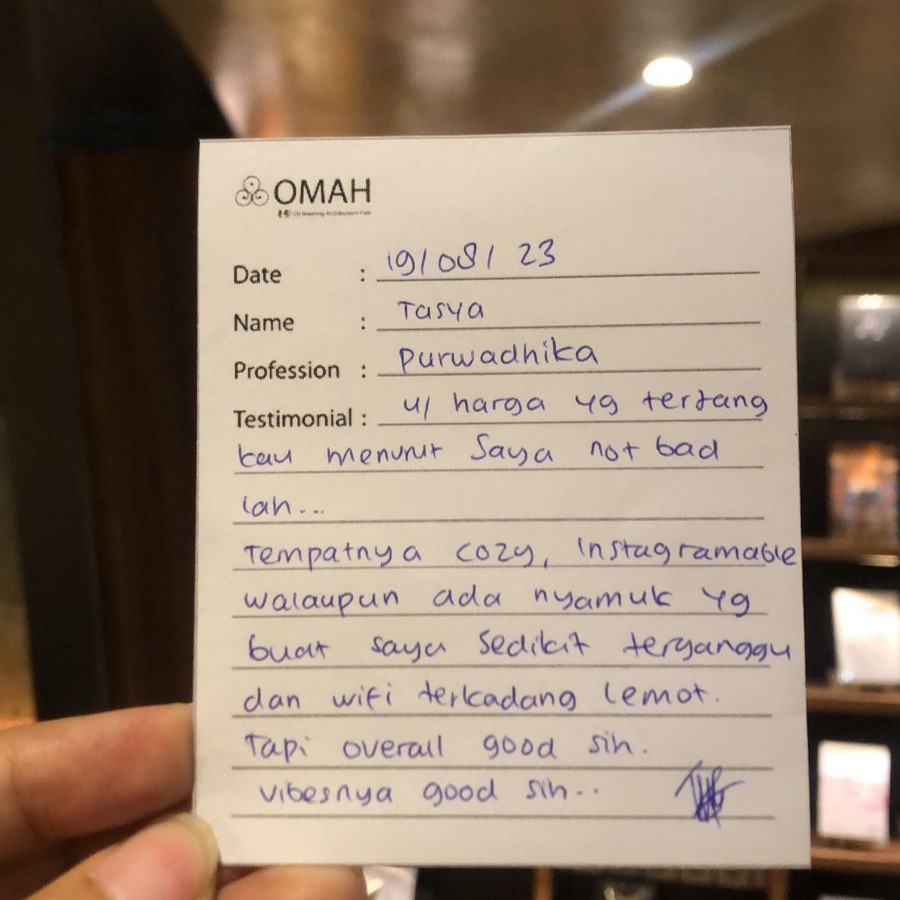 OMAH
Date : 19/08/23
Name : Tasya
Profession : Purwadhika
Testimonial : u/ harga yg terjang
kau menurut saya not bad
lah...
Tempatnya cozy, instagramable
walaupun ada nyamuk yg
buat saya sedikit terganggu
dan wifi terkadang lemot.
Tapi overall good sih.
vibesnya good sih..